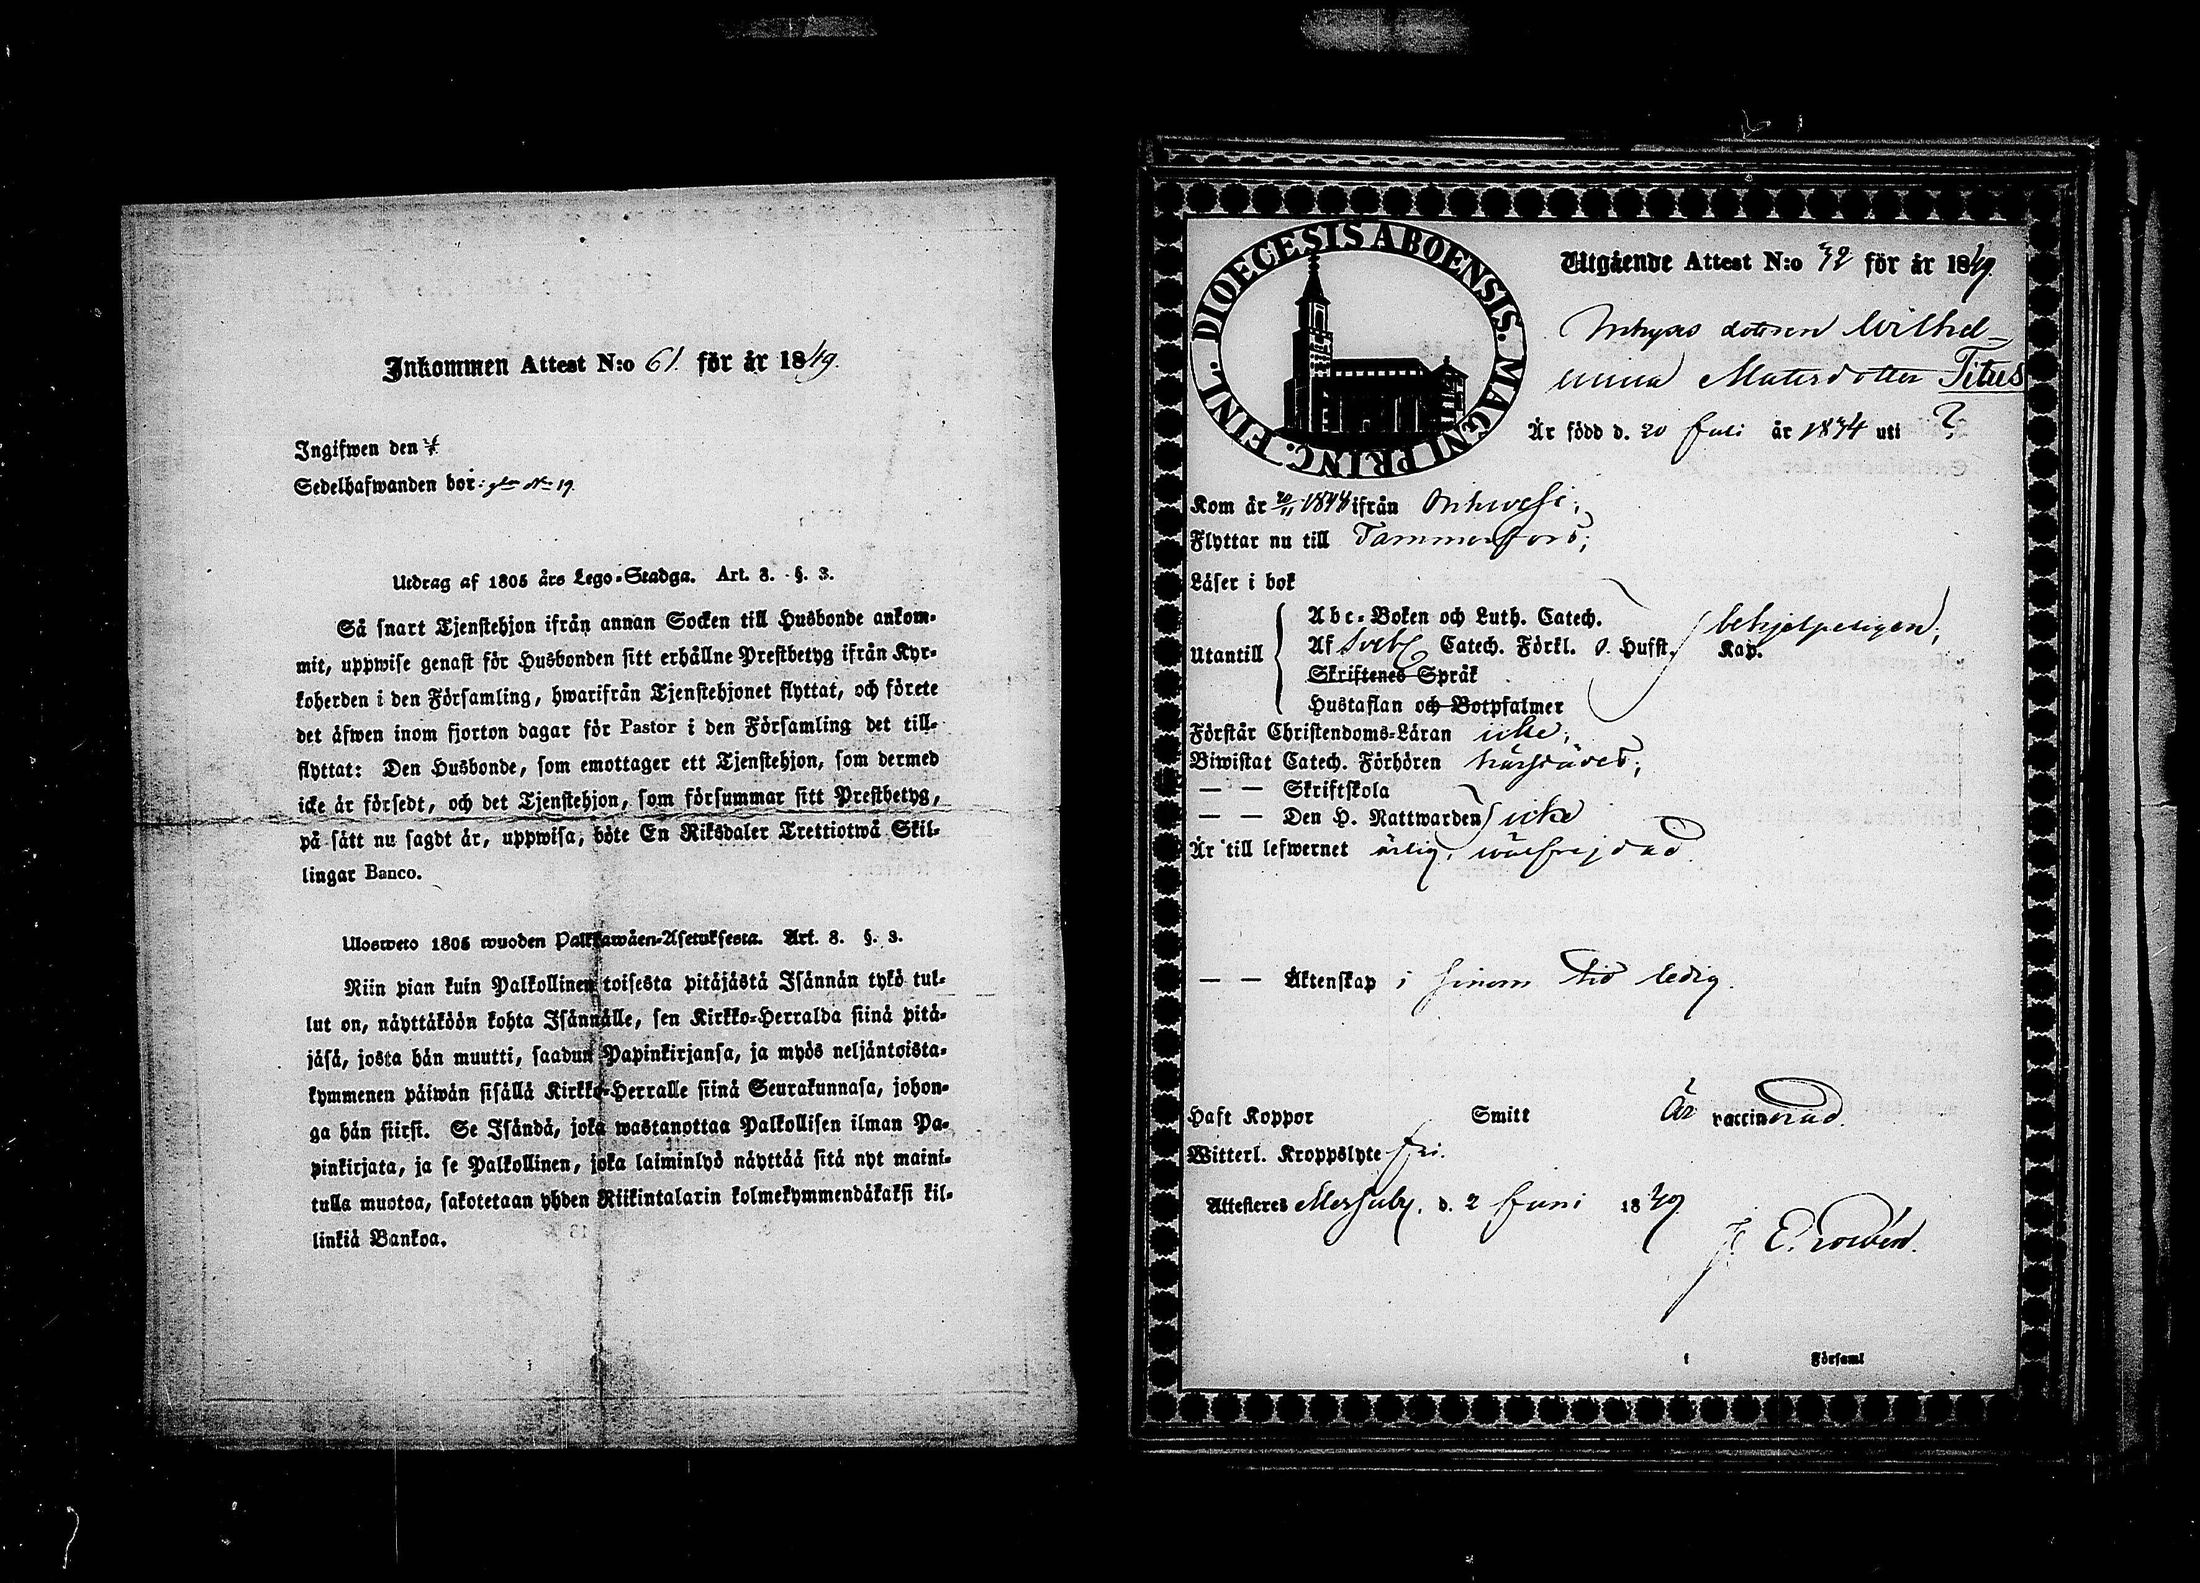 Inkommen Attest N:o 61. för år 1849.
Ingifwen den
Sedelhafwanden bor: N:o 19.
Utdrag af 1805 års Lego-Stadga. Art. 8. §. 3.
Så snart Tjenstehjon ifrån annan Socken till Husbonde ankom-
mit, uppwise genast för Husbonden sitt erhållne Prestbetyg ifrån Kyr-
koherden i den Församling, hwarifrån Tjenstehjonet flyttat, och förete
det äfwen inom fjorton dagar för Pastor i den Församling det till-
flyttat: Den Husbonde, som emottager ett Tjenstehjon, som dermed
icke är försedt, och det Tjenstehjon, som försummar sitt Prestbetyg,
på sätt nu sagdt är, uppwisa, böte En Riksdaler Trettiotwå Skil-
lingar Banco.
Ulosweto 1805 wuoden Palkkawäen-Asetuksesta. Art. 8. §. 3.
Niin pian kuin Palkollinen toisesta pitäjästä Isännän tykö tul-
lut on, näyttäköön kohta Isännälle, sen Kirkko-Herralda siinä pitä-
jäsä, josta hän muutti, saadun Papinkirjansa, ja myös neljäntoista-
kymmenen päiwän sisällä Kirkko-Herralle siinä Seurakunnasa, johon-
ga hän siirsi. Se Isändä, joka wastanottaa Palkollisen ilman Pa-
pinkirjata, ja se Palkollinen, joka laiminlyö näyttää sitä nyt maini-
tulla muotoa, sakotetaan yhden Riikintalarin kolmekymmendäkaksi kil-
linkiä Bankoa.
DIOECESIS ABOENSIS. MAGNI PRINC. FINL.
Utgående Attest N:o 32 för år 1849.
Inhyses dottren Wilhel-
mina Matsdotter Titus
Är född d. 20 Juli år 1834 uti ?
Kom år 20/11 1848 ifrån Orihwesi;
Flyttar nu till Tammerfors;
Läser i bok
Abc-Boken och Luth. Catech.
Utantill Af Sveb. Catech. Förkl. o. Hufst. Kap. behjelpeligen;
Skriftenes Språk
Hustaflan och Botpsalmer
Förstår Christendoms-Läran icke;
Biwistat Catech. Förhören härstädes;
— — Skriftskola
— — Den H. Nattwarden icke
Är till lefwernet ärlig, wälfrejdad.
— — Äktenskap i sinom tid ledig.
Haft Koppor Smitt Är vaccinerad.
Witterl. Kroppslyte fri.
Attesteres Messuby, d. 2 Juni 1849
i Församl